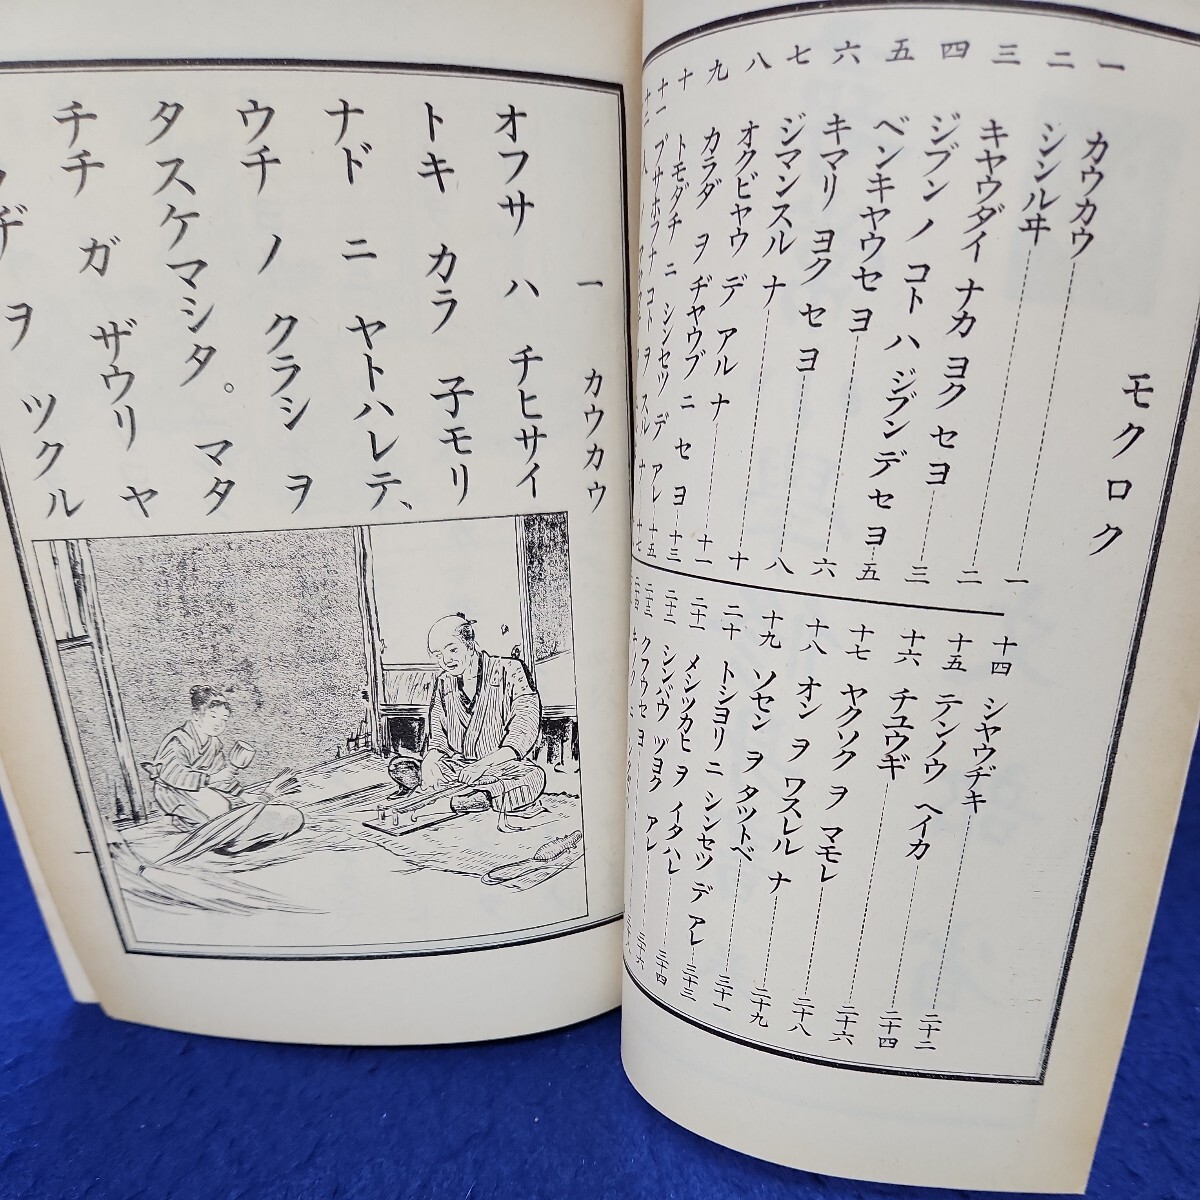 モクロク
一 カウカウ 一
二 シンルヰ 二
三 キヤウダイ ナカ ヨク セヨ 三
四 ジブン ノ コト ハ ジブンデ セヨ 五
五 ベンキヤウセ ヨ 六
六 キマリ ヨク セ ヨ 八
七 ジマンスル ナ 十
八 オクビヤウ デ アル ナ 十一
九 カラダ ヲ ヂヤウブ ニ セ ヨ 十三
十 トモダチ ニ シンセツ デ アレ 十五
十一 ブサホフナ コト ヲ スル ナ 十七
十四 シヤウヂキ 二十二
十五 テンノウ ヘイカ 二十四
十六 チユウギ 二十六
十七 ヤクソク ヲ マモレ 二十八
十八 オン ヲ ワスレル ナ 二十九
十九 ソセン ヲ タツトベ 三十一
二十 トシヨリ ニ シンセツ デ アレ 三十三
二十一 メシツカヒ ヲ イタハレ 三十四
二十二 シンバウ ヅヨク アレ 三十六
二十三 クフウセ ヨ
一 カウカウ
オフサ ハ チヒサイ
トキ カラ 子モリ
ナド ニ ヤトハレテ、
ウチ ノ クラシ ヲ
タスケマシタ。マタ
チチ ガ ザウリ ヤ
ヲ ツクル
一